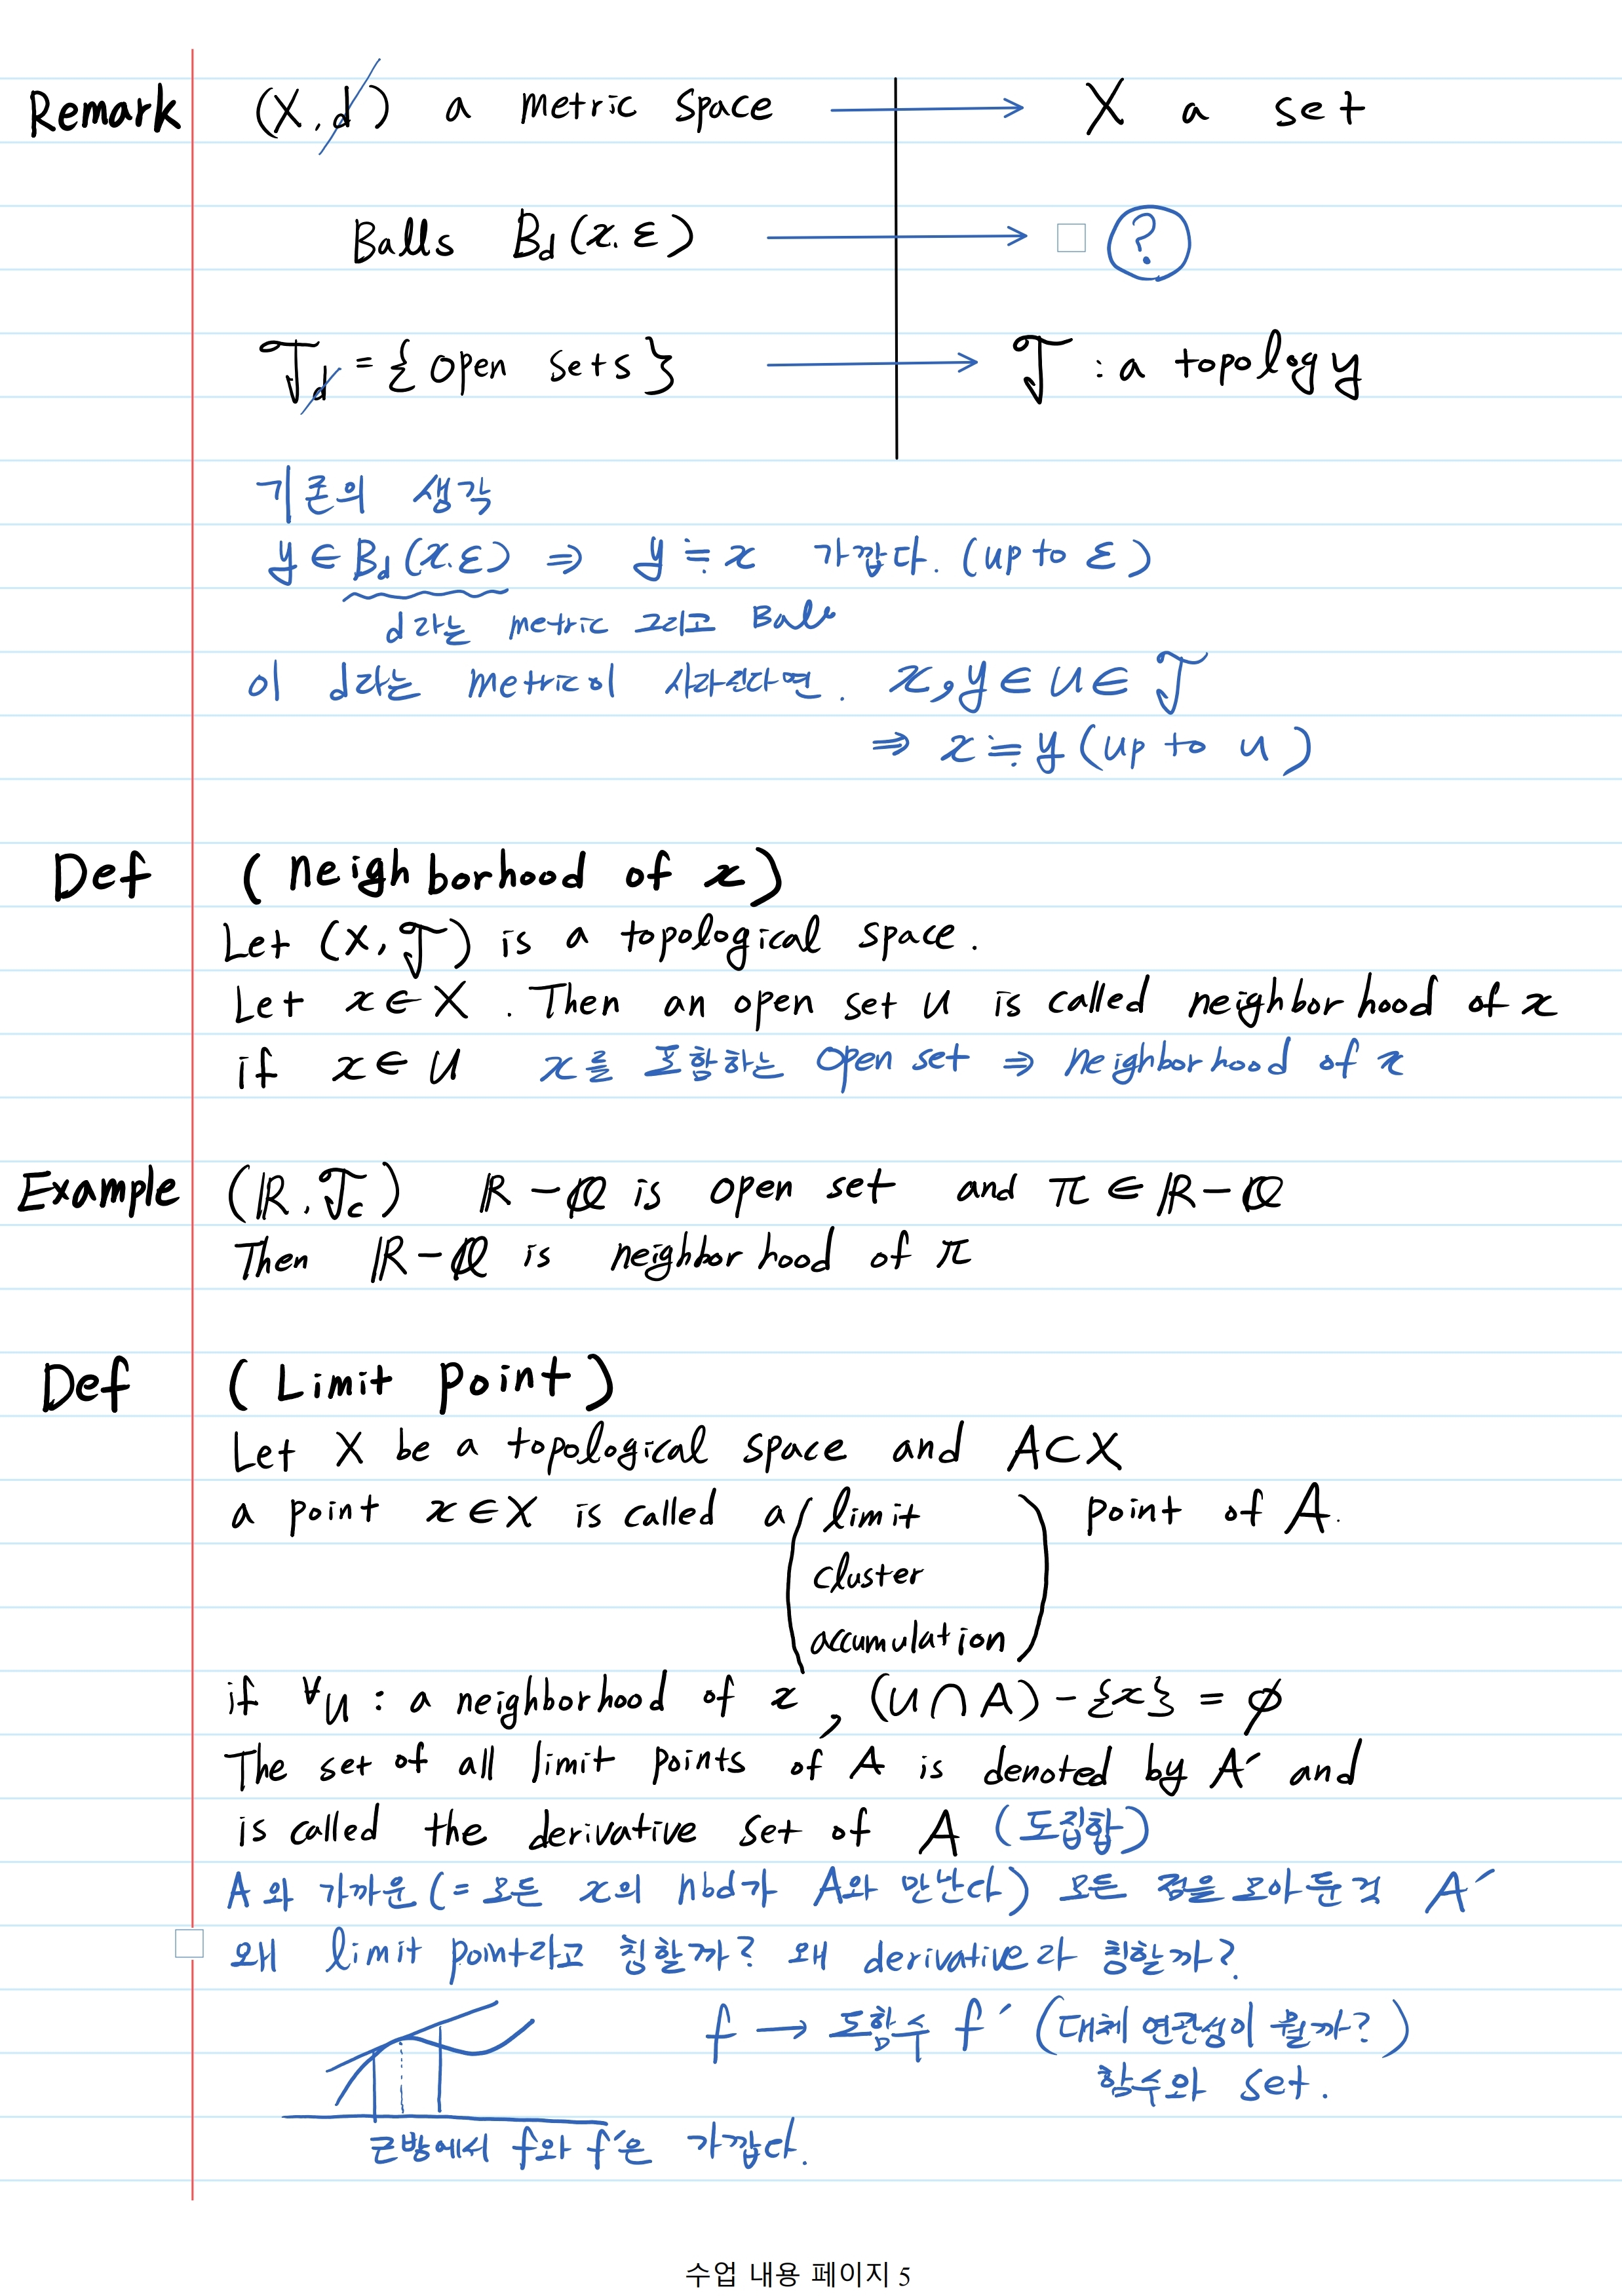 Remark (X, d) a metric space → X a set
Balls B_d(x. ε) → □ ?
𝒯_d = { open sets } → 𝒯 : a topology
기론의 생각
y ∈ B_d(x.ε) ⇒ y ≒ x 가깝다. (up to ε)
d라는 metric 그리고 Balls
이 d라는 metric이 사라진다면. x, y ∈ U ∈ 𝒯
⇒ x ≒ y (up to u)
Def (neighborhood of x)
Let (X, 𝒯) is a topological space.
Let x ∈ X. Then an open set U is called neighborhood of x
if x ∈ U x를 포함하는 open set ⇒ neighborhood of x
Example (ℝ, 𝒯_c) ℝ - ℚ is open set and π ∈ ℝ - ℚ
Then ℝ - ℚ is neighborhood of π
Def (Limit point)
Let X be a topological space and A⊂X
a point x ∈ X is called a (limit point of A.
cluster
accumulation)
if ∀U : a neighborhood of x, (U ∩ A) - {x} = ∅
The set of all limit points of A is denoted by A′ and
is called the derivative set of A (도집합)
A와 가까운 (= 모든 x의 nbd가 A와 만난다) 모든 점을 모아둔것 A′
□ 왜 limit point라고 칭할까? 왜 derivative라 칭할까?
f → 도함수 f′ (대체 연관성이 뭘까?)
함수와 set.
근방에서 f와 f′은 가깝다.
수업 내용 페이지 5